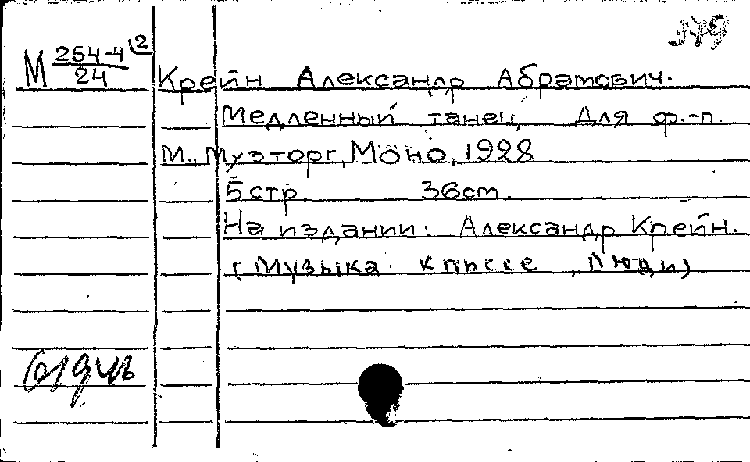 379
М 254-4 12
24
Крейн Александр Абрамович.
Медленный танец. Для ф.-п.
М., Музторг, Моно, 1928
5 стр. 36 cm.
На издании: Александр Крейн.
(Музыка к пьесе "Люди)